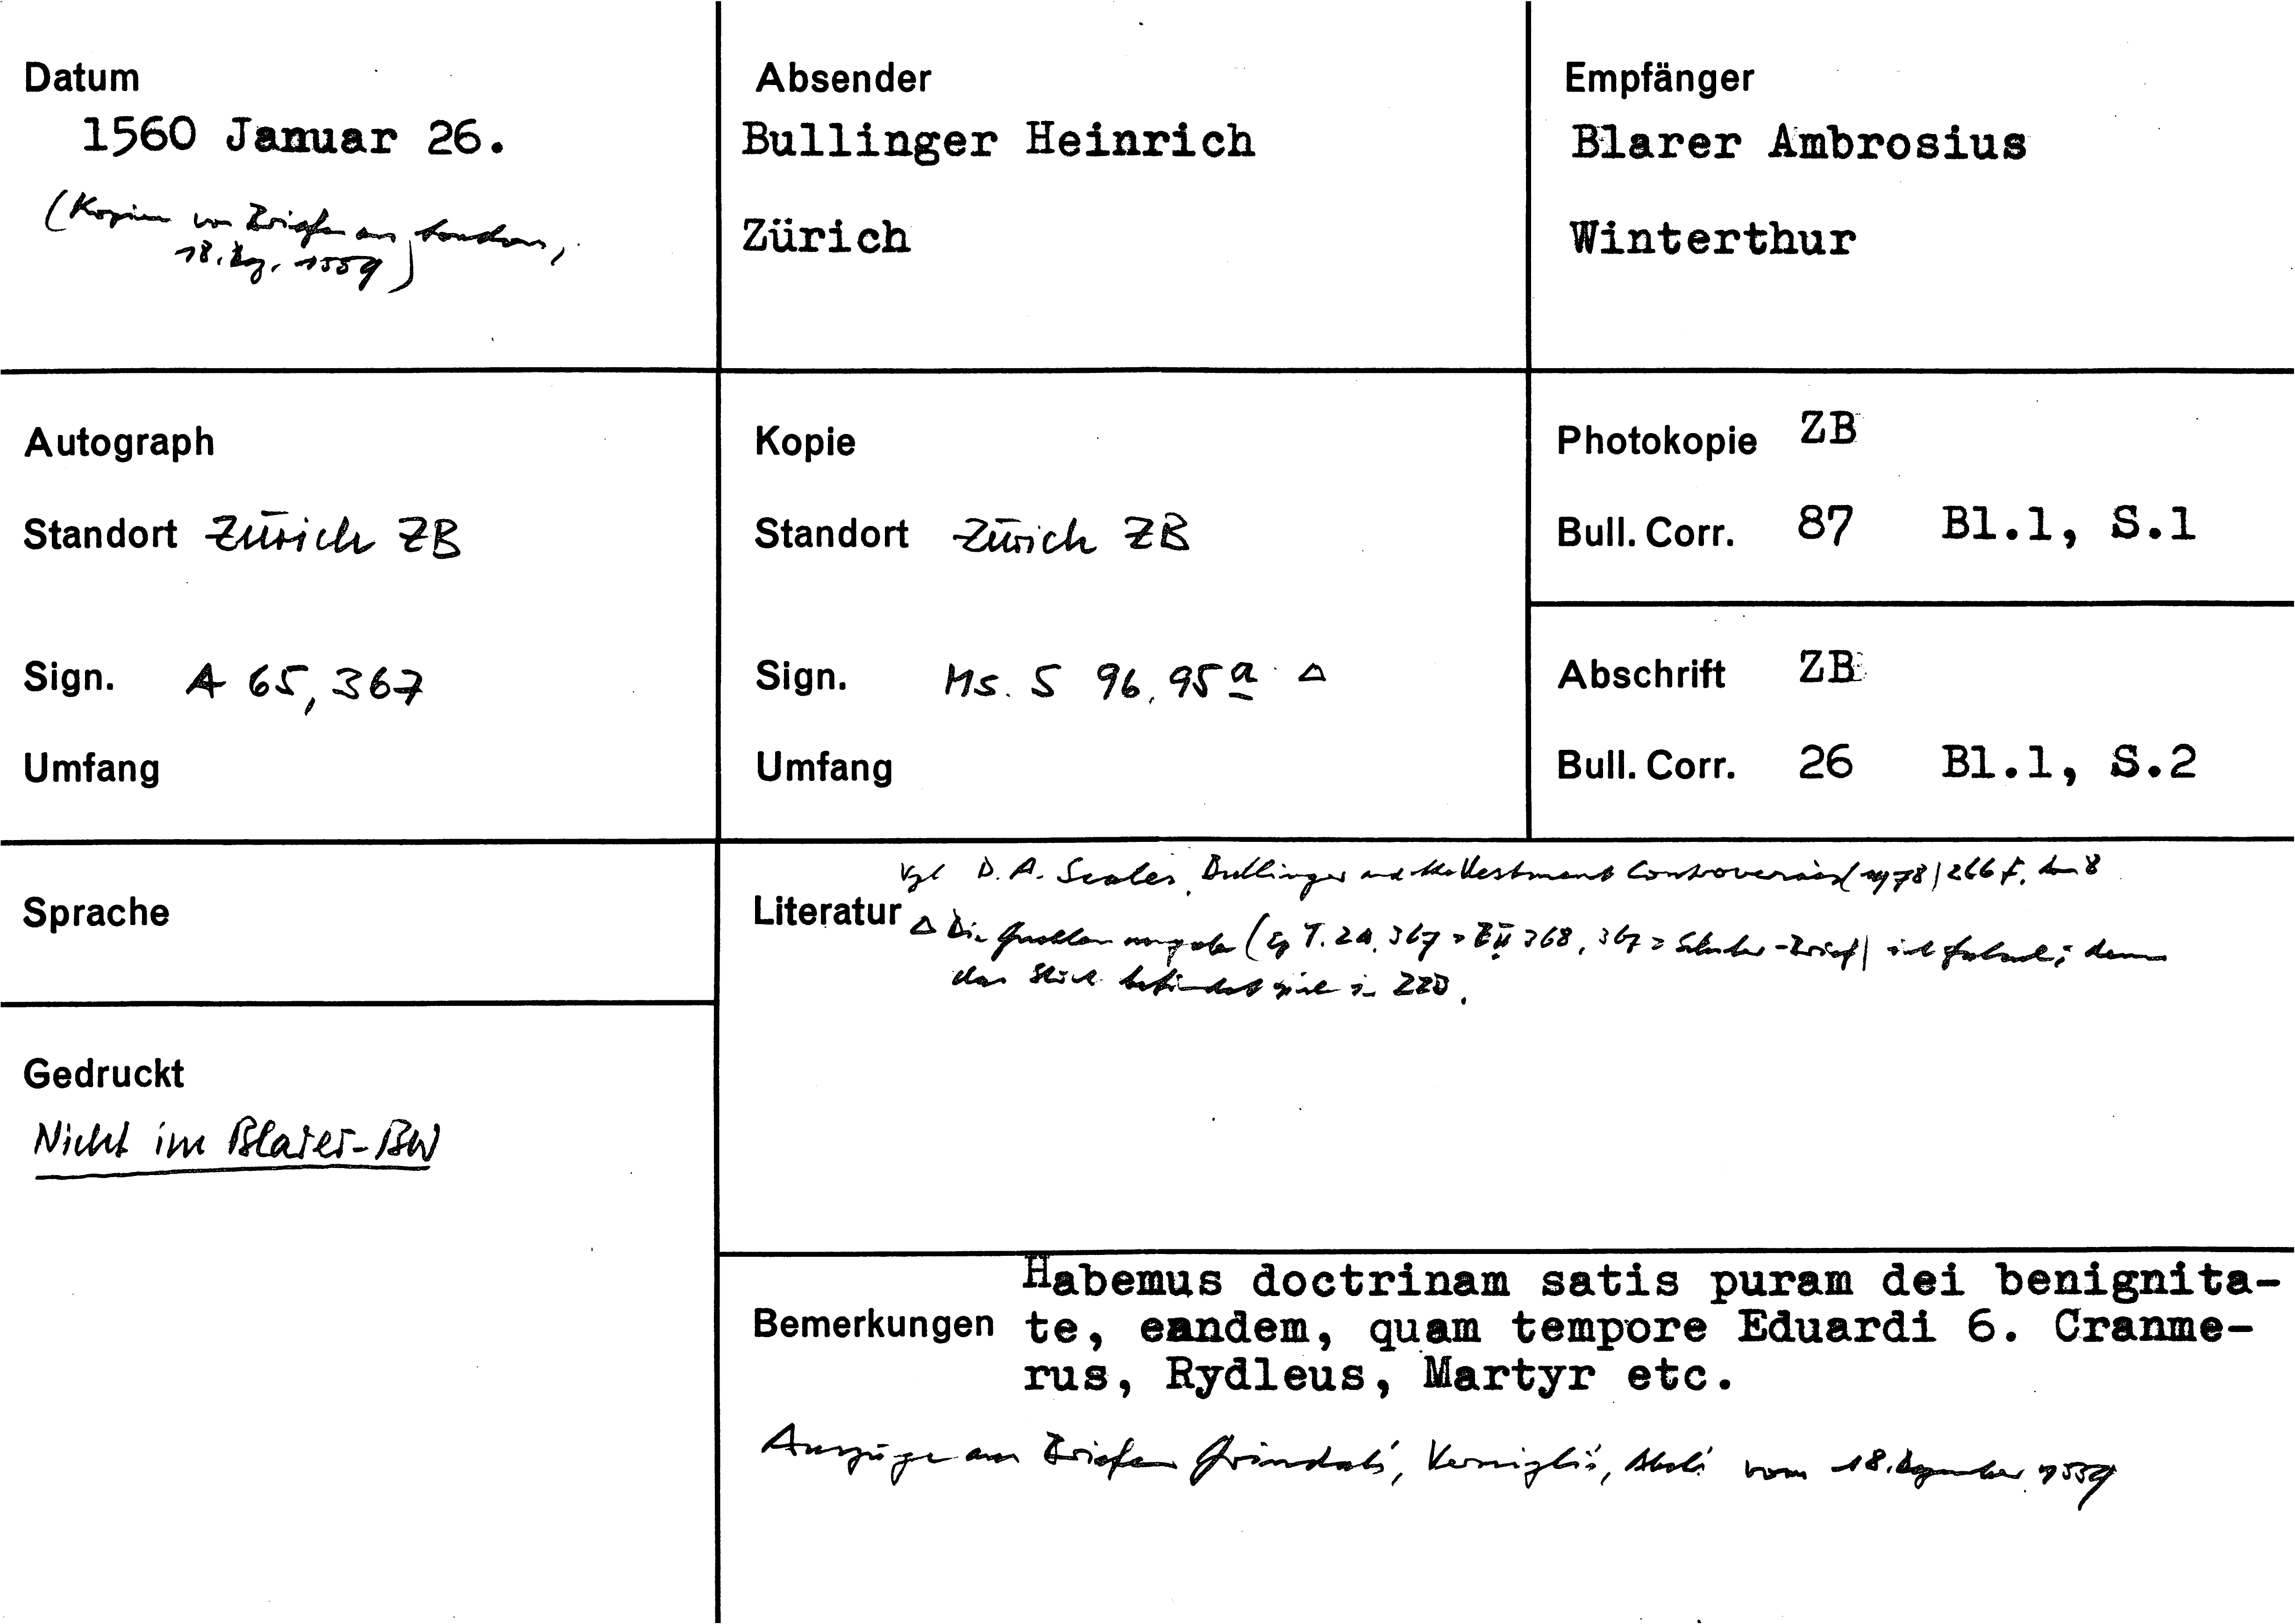 Datum
1560 Januar 26.
(Kopien von Briefen aus London,
18. Dez. 1559)
Absender
Bullinger Heinrich
Zürich
Empfänger
Blarer Ambrosius
Winterthur
Autograph
Standort Zürich ZB
Sign. A 65, 367
Umfang
Kopie
Standort Zürich ZB
Sign. Ms. S 96, 95 a Δ
Umfang
Photokopie ZB
Bull. Corr. 87 Bl.1, S.1
Abschrift ZB
Bull. Corr. 26 Bl.1, S.2
Sprache
Gedruckt
Nicht im Blarer-BW
Vgl D. A. Scales, Bullinger and the Vestment Controversies (1978) 266 f.
Literatur
Δ Die Quellenangabe (Ep T. 2a, 367 = E II 368, 367 = -Brief) ist falsch; denn
das Stück befindet sich in ZZB.
Bemerkungen
Habemus doctrinam satis puram dei benignita-
te, eandem, quam tempore Eduardi 6. Cranme-
rus, Rydleus, Martyr etc.
Auszüge aus Briefen Grindals, vom 18. Dezember 1559